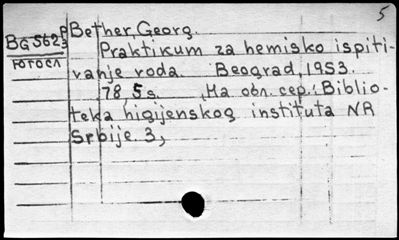 5
BG5623P Bether, Georg.
FOTOGR Praktikum za hemisko ispiti-
vanje voda. Beograd, 1953.
78, 5 s. (На обл. сер.: Biblio-
teka higijenskog instituta NR
Srbije. 3,